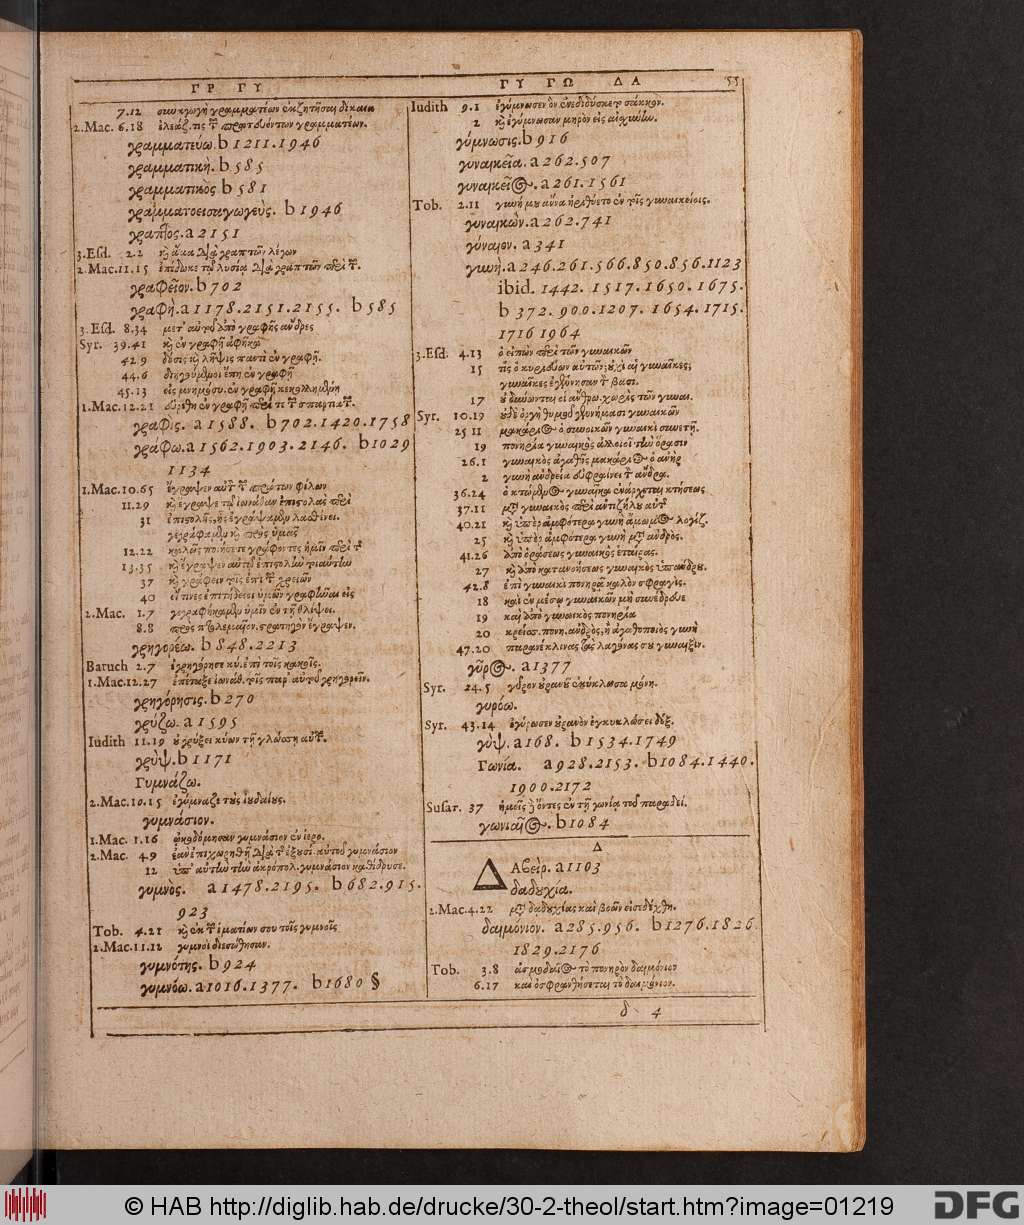 ΓΡ ΓΥ
7.12 συναγωγὴ γραμματέων ἐκζητῆσαι δίκαια
2.Mac. 6.18 ἐλεάζ. τις τ πρωτευόντων γραμματέων.
γραμματεύω. b 1211.1946
γραμματικὴ. b 585
γραμματικὸς b 581
γραμματοεισαγωγεὺς. b 1946
γραπτος. a 2151
3.Esd. 2.2 καὶ ἅμα διὰ γραπτῶν λέγων
2.Mac. 11.15 ἐπέδωκε τῷ λυσίᾳ διὰ γραπτῶν περὶ τ.
γραφεῖον. b 702
γραφὴ. a 1178.2151.2155. b 585
3.Esd. 8.34 μετ' αὐτοῦ ἀπὸ γραφῆς ἄνδρες
Syr. 39.41 καὶ ἐν γραφῇ ἀφῆκα
42 9 δόσις καὶ λῆψις παντὶ ἐν γραφῇ.
44.6 διηγούμενοι ἔπη ἐν γραφῇ
45.13 εἰς μνημόσυ. ἐν γραφῇ κεκολλημένη
1.Mac. 12.21 εὑρέθη ἐν γραφῇ περί τε τ σπαρτιατ.
γραφίς. a 1588. b 702.1420.1758
γράφω. a 1562.1903.2146. b 1029
1134
1.Mac. 10.65 ἔγραψεν αὐτ τ πρώτων φίλων
11.29 καὶ ἔγραψε τῷ ἰωνάθαν ἐπιστολὰς περὶ
31 ἐπιστολῆς, ἧς ἐγράψαμεν λασθένει.
γεγράφαμεν καὶ πρὸς ὑμᾶς
12.22 καλῶς ποιήσετε γράφοντες ἡμῖν περὶ τ
13.35 καὶ ἔγραψεν αὐτῷ ἐπιστολὴν τοιαύτην
37 καὶ γράφειν τοῖς ἐπὶ τ χρειῶν
40 εἴ τινες ἐπιτήδειοι ὑμῶν γραφῆναι εἰς
2.Mac. 1.7 γεγραφήκαμεν ὑμῖν ἐν τῇ θλίψει.
8.8 πρὸς πτολεμαῖον. στρατηγὸν ἔγραψεν.
γρηγορέω. b 848.2213
Baruch 2.7 ἐγρηγόρησε κύ. ἐπὶ τοῖς κακοῖς.
1.Mac. 12.27 ἐπέταξε ἰωνάθ. τοῖς παρ' αὐτοῦ γρηγορεῖν.
γρηγόρησις. b 270
γρύζω. a 1595
Iudith 11.19 οὐ γρύξει κύων τῇ γλώσσῃ αὐτ.
γρὺψ. b 1171
Γυμνάζω.
2.Mac. 10.15 ἐγύμναζε τοὺς ἰουδαίους.
γυμνάσιον.
1.Mac. 1.16 ᾠκοδόμησαν γυμνάσιον ἐν ἱερο.
2.Mac. 4.9 ἐὰν ἐπιχωρηθῇ διὰ τ ἐξουσί. αὐτοῦ γυμνάσιον
12 ὑπ' αὐτὴν τὴν ἀκρόπολ. γυμνάσιον καθίδρυσε.
γυμνὸς. a 1478.2195. b 682.915.
923
Tob. 4.21 καὶ ἐκ τ ἱματίων σου τοῖς γυμνοῖς
2.Mac. 11.12 γυμνοὶ διεσώθησαν.
γυμνότης. b 924
γυμνόω. a 1016.1377. b 1680 §
ΓΥ ΓΩ ΔΑ 55
Iudith 9.1 ἐγύμνωσεν ὃν ἐνεδιδύσκετο σάκκον.
2 καὶ ἐγύμνωσαν μηρὸν εἰς αἰσχύνην.
γύμνωσις. b 916
γυναικεῖα. a 262.507
γυναικεῖος. a 261.1561
Tob. 2.11 γυνή μου ἄννα ἠριθεύετο ἐν τοῖς γυναικείοις.
γυναικὼν. a 262.741
γύναιον. a 341
γυνὴ. a 246.261.566.850.856.1123
ibid. 1442. 1517.1650. 1675.
b 372. 900.1207. 1654.1715.
1716 1964
3.Esd. 4.13 ὁ εἰπὼν περὶ τῶν γυναικῶν
15 τίς ὁ κυριεύων αὐτῶν; οὐχὶ αἱ γυναῖκες;
γυναῖκες ἐγέννησαν τ βασι.
17 οὐ δύνωνται οἱ ἄνθρω. χωρὶς τῶν γυναι.
Syr. 10.19 οὐδὲ ὀργὴ θυμοῦ γεννήμασι γυναικῶν
25 11 μακάριος ὁ συνοικῶν γυναικὶ συνετῇ.
19 πονηρία γυναικὸς ἀλλοιοῖ τὴν ὅρασιν
26.1 γυναικὸς ἀγαθῆς μακάριος ὁ ἀνὴρ
2 γυνὴ ἀνδρεία εὐφραίνει τ ἄνδρα.
36.24 ὁ κτώμενος γυναῖκα ἐνάρχεται κτήσεως
37.11 μετὰ γυναικὸς περὶ ἀντιζήλου αὐτ
40.21 καὶ ὑπὲρ ἀμφότερα γυνὴ ἄμωμος λογίζ.
25 καὶ ὑπὲρ ἀμφότερα γυνὴ μετὰ ἀνδρός.
41.26 ἀπὸ ὁράσεως γυναικὸς ἑταίρας.
27 καὶ ἀπὸ κατανοήσεως γυναικὸς ὑπάνδρου.
42.8 ἐπὶ γυναικὶ πονηρᾷ καλὸν σφραγίς.
18 καὶ ἐν μέσῳ γυναικῶν μὴ συνέδρευε
19 καὶ ἀπὸ γυναικὸς πονηρία
20 κρείσσ. πονη. ἀνδρὸς, ἢ ἀγαθοποιὸς γυνὴ
47.20 παρανέκλινας τὰς λαγόνας σου γυναιξίν.
γῦρος. a 1377
Syr. 24.5 γύρον οὐρανοῦ ἐκύκλωσα μόνη.
γυρόω.
Syr. 43.14 ἐγύρωσεν οὐρανὸν ἐγκυκλώσει δόξ.
γὺψ. a 168. b 1534.1749
Γωνία. a 928.2153. b 1084.1440.
1900.2172
Susar. 37 ἡμεῖς δὲ ὄντες ἐν τῇ γωνίᾳ τοῦ παραδεί.
γωνιαῖος. b 1084
Δ
ΔΑβεὶρ. a 1103
δᾳδουχία.
2.Mac. 4.22 μετὰ δᾳδουχίας καὶ βοῶν εἰσεδέχθη.
δαιμόνιον. a 285.956. b 1276.1826.
1829.2176
Tob. 3.8 ἀσμοδαῖος τὸ πονηρὸν δαιμόνιον
6.17 καὶ ὀσφρανθήσεται τὸ δαιμόνιον.
d 4
© HAB http://diglib.hab.de/drucke/30-2-theol/start.htm?image=01219 DFG